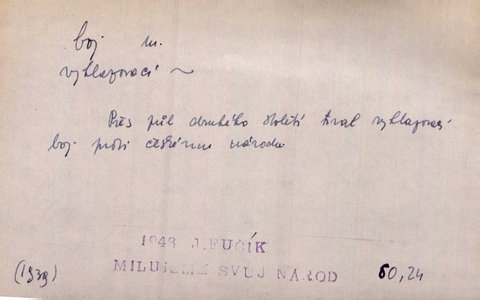 boj m.
vyhlazovací ~
Přes půl druhého století trval vyhlazovací
boj proti českému národu
1948 J.FUČÍK
MILUJEME SVŮJ NÁROD
(1939) 60,24